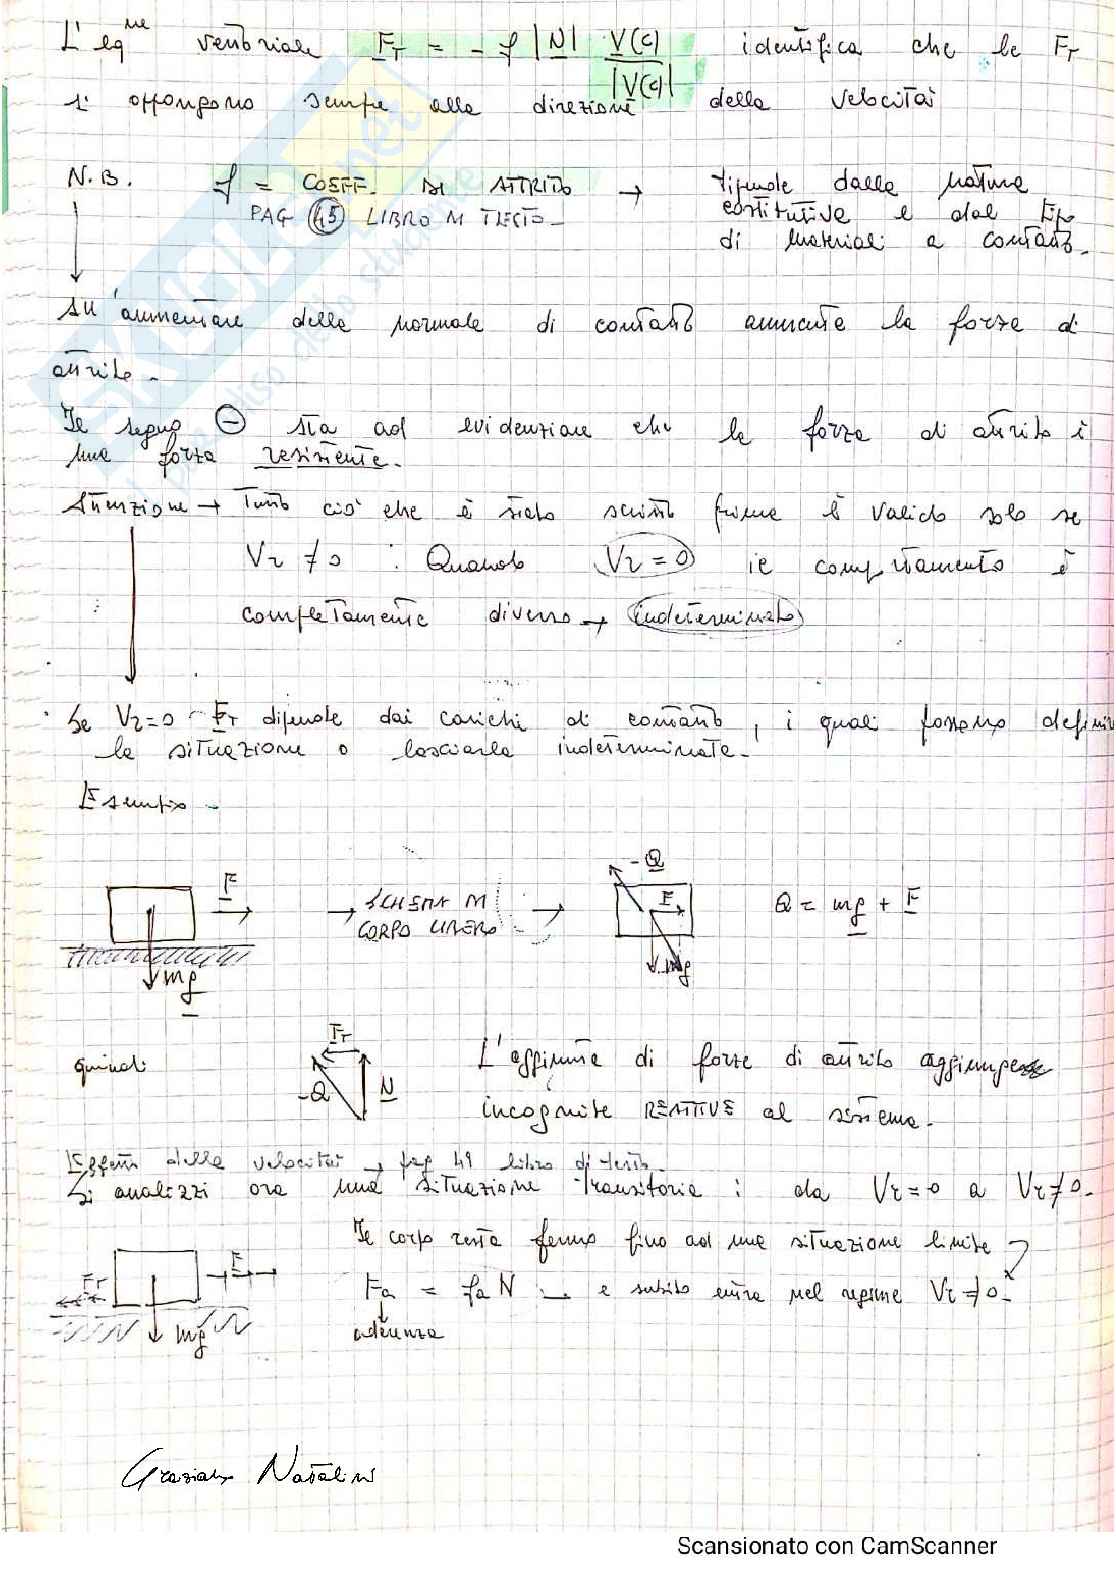 L'eq.ne vettoriale F_T = - f |N| V(c)/|V(c)| identifica che le F_T
si oppongono sempre alla direzione della velocità
N.B. f = COEFF. DI ATTRITO → dipende dalla natura
PAG 45 LIBRO DI TESTO costitutiva e dal tipo
di materiali a contatto.
All'aumentare della normale di contatto aumenta la forza di
attrito.
Il segno ⊖ sta ad evidenziare che la forza di attrito è
una forza resistente.
Attenzione → Tutto ciò che è stato scritto prima è valido solo se
Vr ≠ 0 : Quando Vr = 0 il comportamento è
completamente diverso → indeterminato
Se Vr=0 F_T dipende dai carichi di contatto, i quali possono definire
la situazione o lasciarla indeterminata.
Esempio -
F → SCHEMA DI CORPO LIBERO → -Q F Q = mg + F
mg mg
quindi F_T -Q N L'aggiunta di forze di attrito aggiunge
incognite REATTIVE al sistema.
Effetti della velocità → pag 49 libro di testo.
Si analizzi ora una situazione transitoria : da Vr=0 a Vr≠0.
Il corpo resta fermo fino ad una situazione limite
F_T F mg Fa = fa N → e subito entra nel regime Vr ≠ 0.
aderenza
Graziano Natalini
Scansionato con CamScanner
SKUOLA.net
il paradiso dello studente